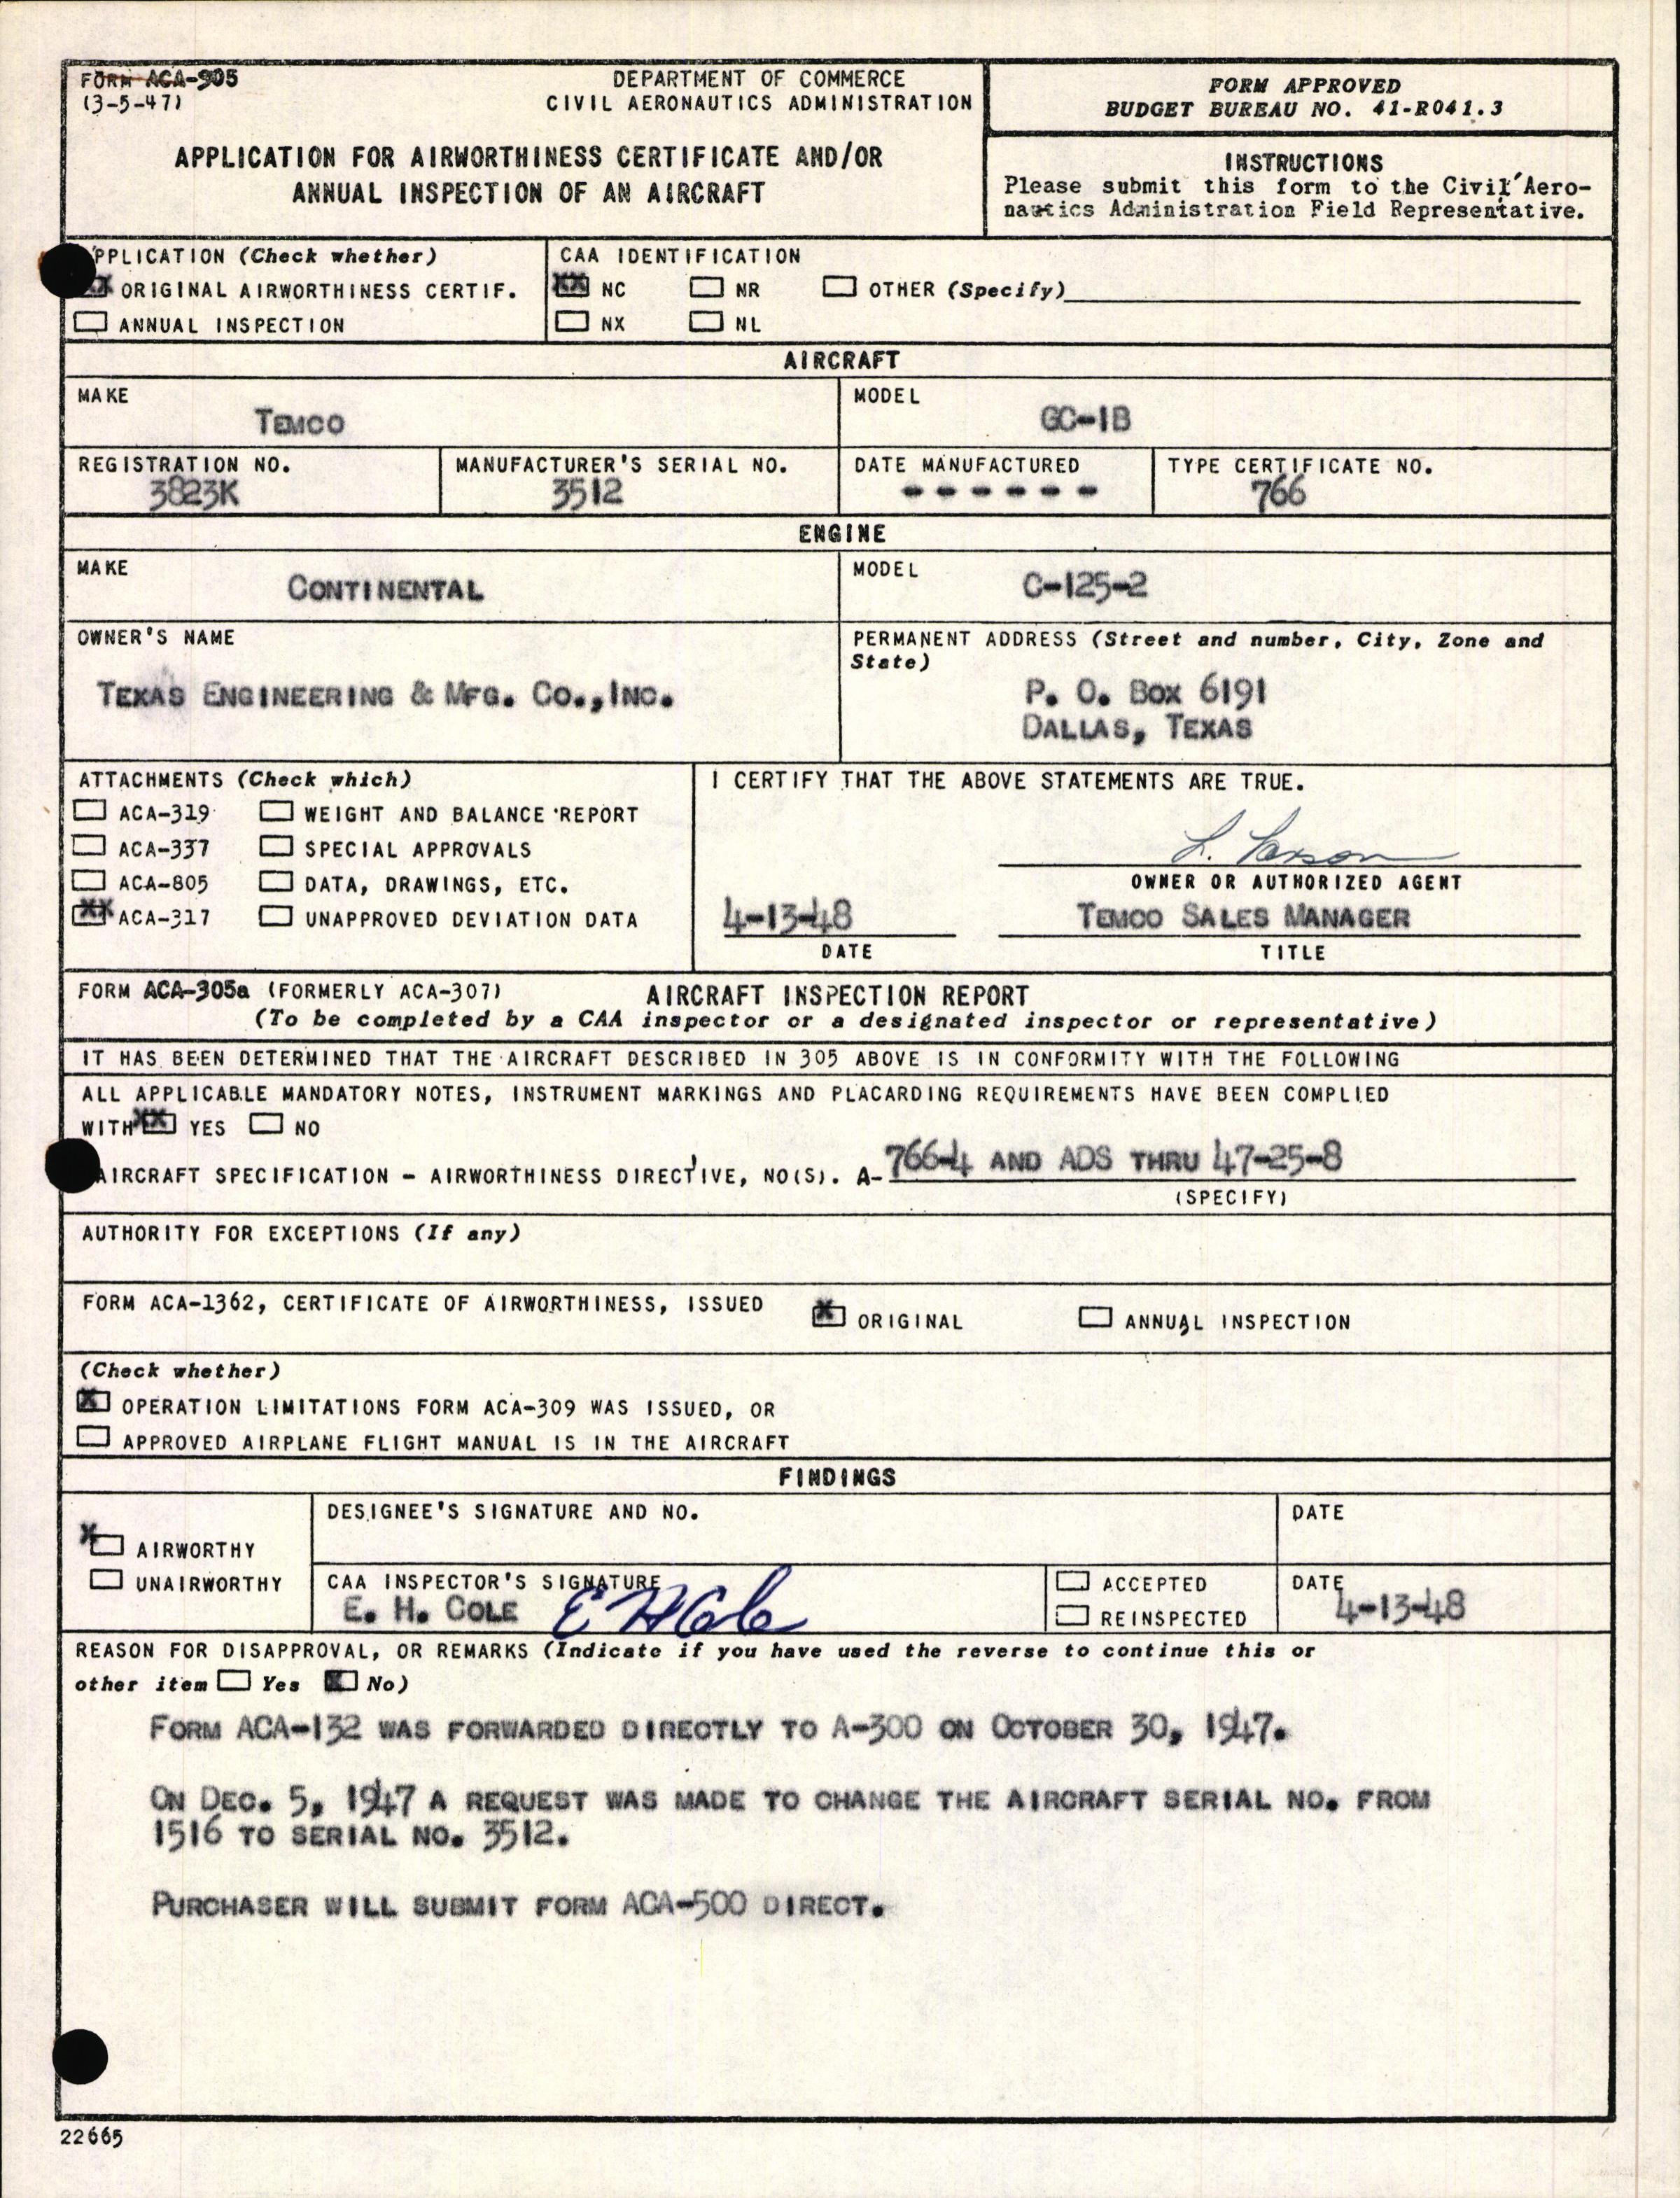 FORM ACA-305
(3-5-47)
DEPARTMENT OF COMMERCE
CIVIL AERONAUTICS ADMINISTRATION
APPLICATION FOR AIRWORTHINESS CERTIFICATE AND/OR
ANNUAL INSPECTION OF AN AIRCRAFT
FORM APPROVED
BUDGET BUREAU NO. 41-R041.3
INSTRUCTIONS
Please submit this form to the Civil Aero-
nautics Administration Field Representative.
APPLICATION (Check whether)
XX ORIGINAL AIRWORTHINESS CERTIF.
ANNUAL INSPECTION
CAA IDENTIFICATION
XX NC NR OTHER (Specify)
NX NL
AIRCRAFT
MAKE
TEMCO
MODEL
GC-1B
REGISTRATION NO.
3823K
MANUFACTURER'S SERIAL NO.
3512
DATE MANUFACTURED
- - - - - -
TYPE CERTIFICATE NO.
766
ENGINE
MAKE
CONTINENTAL
MODEL
C-125-2
OWNER'S NAME
TEXAS ENGINEERING & MFG. CO.,INC.
PERMANENT ADDRESS (Street and number, City, Zone and
State)
P. O. BOX 6191
DALLAS, TEXAS
ATTACHMENTS (Check which)
ACA-319 WEIGHT AND BALANCE REPORT
ACA-337 SPECIAL APPROVALS
ACA-805 DATA, DRAWINGS, ETC.
XX ACA-317 UNAPPROVED DEVIATION DATA
I CERTIFY THAT THE ABOVE STATEMENTS ARE TRUE.
L.
OWNER OR AUTHORIZED AGENT
4-13-48
DATE
TEMCO SALES MANAGER
TITLE
FORM ACA-305a (FORMERLY ACA-307) AIRCRAFT INSPECTION REPORT
(To be completed by a CAA inspector or a designated inspector or representative)
IT HAS BEEN DETERMINED THAT THE AIRCRAFT DESCRIBED IN 305 ABOVE IS IN CONFORMITY WITH THE FOLLOWING
ALL APPLICABLE MANDATORY NOTES, INSTRUMENT MARKINGS AND PLACARDING REQUIREMENTS HAVE BEEN COMPLIED
WITH XX YES NO
AIRCRAFT SPECIFICATION - AIRWORTHINESS DIRECTIVE, NO(S). A-766-4 AND ADS THRU 47-25-8
(SPECIFY)
AUTHORITY FOR EXCEPTIONS (If any)
FORM ACA-1362, CERTIFICATE OF AIRWORTHINESS, ISSUED X ORIGINAL ANNUAL INSPECTION
(Check whether)
X OPERATION LIMITATIONS FORM ACA-309 WAS ISSUED, OR
APPROVED AIRPLANE FLIGHT MANUAL IS IN THE AIRCRAFT
FINDINGS
X AIRWORTHY
UNAIRWORTHY
DESIGNEE'S SIGNATURE AND NO.
DATE
CAA INSPECTOR'S SIGNATURE
E. H. COLE E H Cole
ACCEPTED
REINSPECTED
DATE
4-13-48
REASON FOR DISAPPROVAL, OR REMARKS (Indicate if you have used the reverse to continue this or
other item Yes X No)
FORM ACA-132 WAS FORWARDED DIRECTLY TO A-300 ON OCTOBER 30, 1947.
ON DEC. 5, 1947 A REQUEST WAS MADE TO CHANGE THE AIRCRAFT SERIAL NO. FROM
1516 TO SERIAL NO. 3512.
PURCHASER WILL SUBMIT FORM ACA-500 DIRECT.
22665